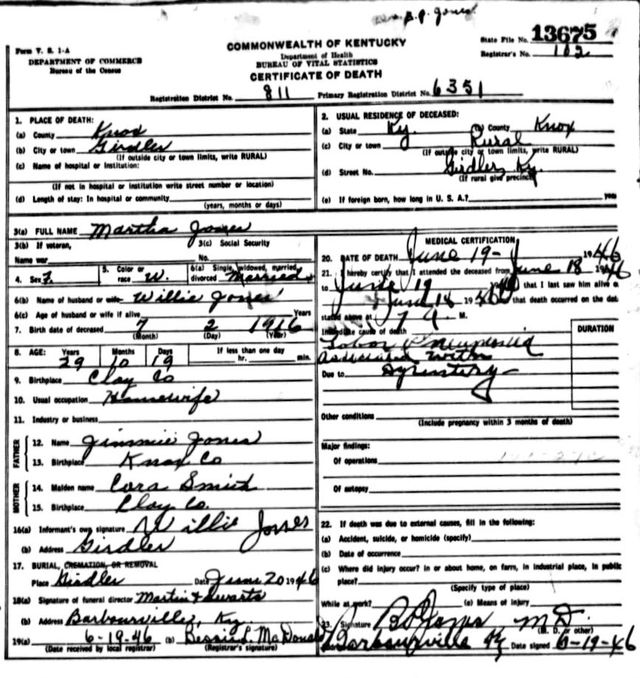 B.P. Jones
Form V. S. 1-A
DEPARTMENT OF COMMERCE
Bureau of the Census
COMMONWEALTH OF KENTUCKY
Department of Health
BUREAU OF VITAL STATISTICS
CERTIFICATE OF DEATH
State File No. 13675
Registrar's No. 102
Registration District No. 811 Primary Registration District No. 6351
1. PLACE OF DEATH:
(a) County Knox
(b) City or town Girdler
(If outside city or town limits, write RURAL)
(c) Name of hospital or institution:
(If not in hospital or institution write street number or location)
(d) Length of stay: In hospital or community
(years, months or days)
2. USUAL RESIDENCE OF DECEASED:
(a) State Ky. (b) County Knox
(c) City or town Rural
(If outside city or town limits, write RURAL)
(d) Street No. Girdler, Ky.
(If rural give precinct)
(e) If foreign born, how long in U. S. A.? years
3(a) FULL NAME Martha Jones
3(b) If veteran, 3(c) Social Security
Name war No.
4. Sex F. 5. Color or race W. 6(a) Single, widowed, married, divorced Married
6(b) Name of husband or wife Willie Jones
6(c) Age of husband or wife if alive Years
7. Birth date of deceased 7 2 1916
(Month) (Day) (Year)
8. AGE: Years Months Days If less than one day
29 10 19 hr. min.
9. Birthplace Clay Co
10. Usual occupation Housewife
11. Industry or business
FATHER
12. Name Jimmie Jones
13. Birthplace Knox Co
MOTHER
14. Maiden name Cora Smith
15. Birthplace Clay Co.
16(a) Informant's own signature Willie Jones
(b) Address Girdler
17. BURIAL, CREMATION, OR REMOVAL
Place Girdler Date June 20 1946
18(a) Signature of funeral director Martin & Swarts
(b) Address Barbourville, Ky.
19(a) 6-19-46 (b) Bessie L. McDonald
(Date received by local registrar) (Registrar's signature)
MEDICAL CERTIFICATION
20. DATE OF DEATH June 19- 1946
21. I hereby certify that I attended the deceased from June 18 1946
to June 19 that I last saw him alive
June 18 1946 that death occurred on the date
stated above at 7 M.
Immediate cause of death DURATION
Lobar Pneumonia
associated with
Due to Dysentery
Other conditions
(Include pregnancy within 3 months of death)
Major findings:
Of operations
Of autopsy
22. If death was due to external causes, fill in the following:
(a) Accident, suicide, or homicide (specify)
(b) Date of occurrence
(c) Where did injury occur? In or about home, on farm, in industrial place, in public
place?
(Specify type of place)
While at work? (e) Means of injury
23. Signature B P Jones M D.
(M. D. or other)
Barbourville Ky Date signed 6-19-46